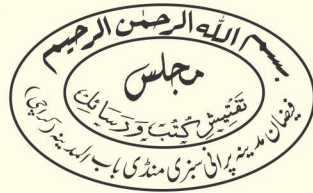 بسم اللہ الرحمن الرحیم
مجلس
تفتیشِ کُتُب وَرَسائل
فیضان مدینہ پرانی سبزی منڈی باب المدینہ (کراچی)